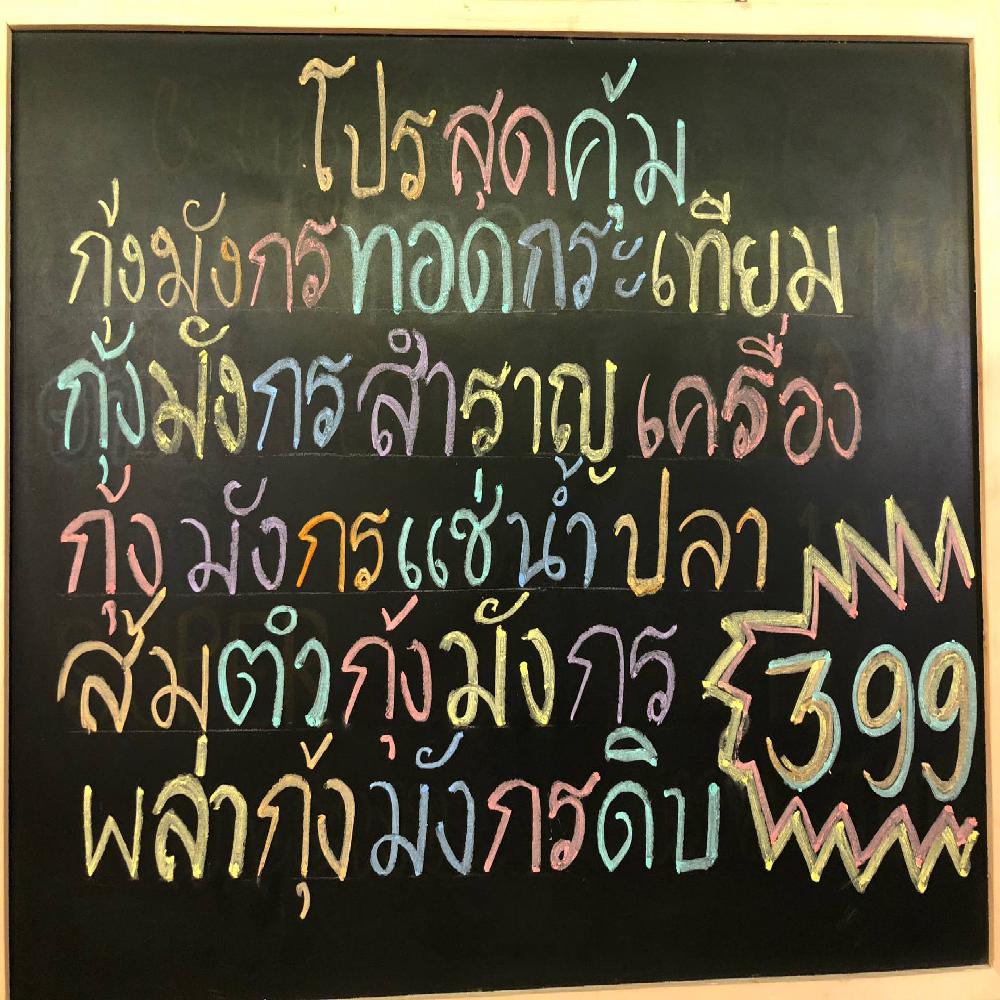 โปรสุดคุ้ม
กุ้งมังกรทอดกระเทียม
กุ้งมังกรสำราญเครื่อง
กุ้งมังกรแช่น้ำปลา
ส้มตำกุ้งมังกร
399
พล่ากุ้งมังกรดิบ